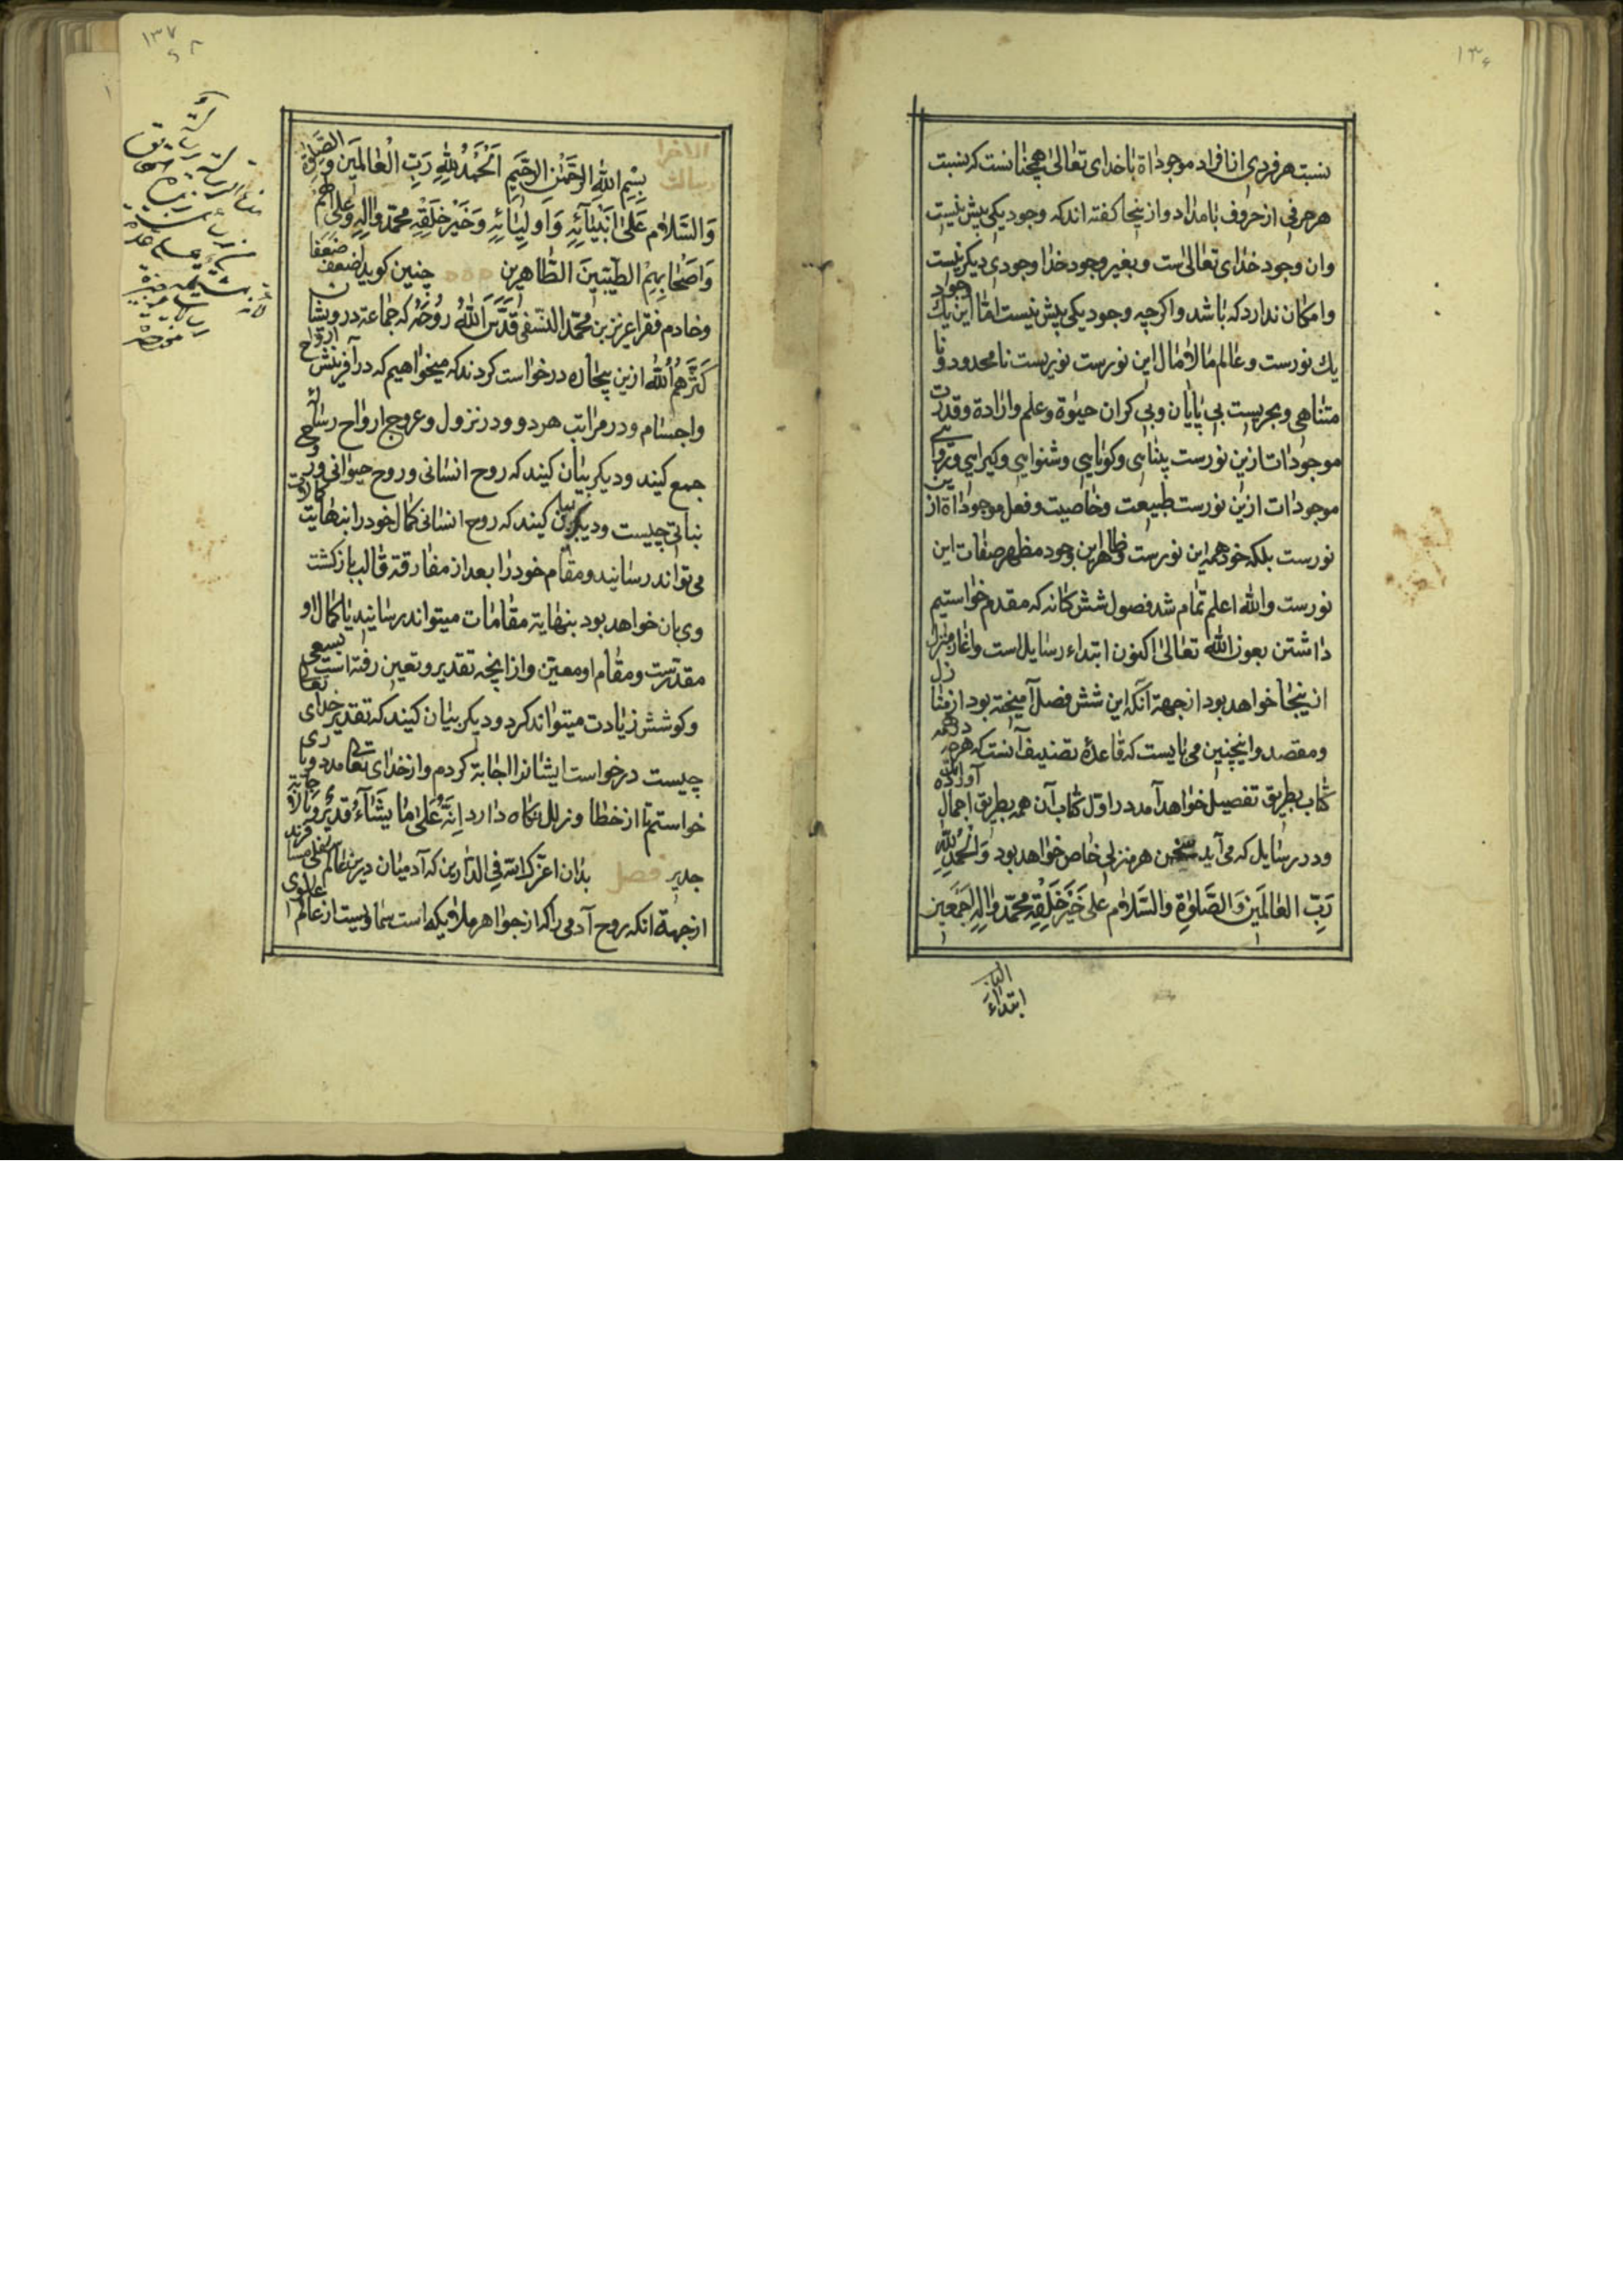 ۱۳۶
نسبت هر فردی از افراد موجوداة باخدای تعالی همچنانست که نسبت
هر حرفی از حروف بامداد و از ینجا کفته اند که وجود یکی بیش نیست
وان وجود خدای تعالی است و بغیر وجود خدا وجودی دیکر نیست
وامکان ندارد که باشد و اکرچه وجود یکی بیش نیست امّا این یک وجود
یک نورست و عالم مالامال این نورست نوریست نامحدود و نا
متناهی و بحریست بی پایان و بی کران حیوة و علم وارادة و قدرت
موجودات ازین نورست بینایی و کویایی و شنوایی و کیرایی و روایی
موجودات ازین نورست طبیعت وخاصیت و فعل موجوداة ازین
نورست بلکه خود همه این نورست و ظاهر این وجود مظهر صفات این
نورست والله اعلم تمام شد فصول شش کانه که مقدم خواستیم
داشتن بعون الله تعالی اکنون ابتداء رسایل است واغاز منزل
از ینجا خواهد بود از جهة آنکه این شش فصل آمیخته بود از منازل
ومقصد واینچنین می بایست که قاعدهٔ تصنیف آنست که هرچه در همه
کتاب بطریق تفصیل خواهد آمد در اوّل کتاب آن همه بطریق اجمال آورده
ودر رسایل که می آید سخن هر منزلی خاص خواهد بود وَالْحَمْدُ لِلّٰهِ
رَبِّ العٰالَمِینَ وَالصَّلٰوةِ والسَّلام عَلی خَیْرِ خَلْقِهِ مُحَمَّد وَاٰلِهِ اَجْمَعین
ابتداء
۱۳۷
بِسْمِ اللهِ الرَّحْمٰنِ الرَّحِیمِ اَلْحَمْدُ لِلّٰهِ رَبِّ الْعٰالَمینَ وَالصَّلٰوةُ
وَالسَّلامُ عَلیٰ اَنْبِیٰائِهِ وَاَوْلِیٰائِهِ وَخَیْرِ خَلْقِهِ مُحَمَّد وَاٰلِهِ وَعَلیٰ اٰلهم
وَاَصْحٰابِهِمْ الطَیِّبینَ الطّٰاهرین چنین کوید اضعف ضعفا
وخادم فقرا عزیز بن محمّد النّسفی قَدَّسَ اللهُ رُوحَهُ که جماعة درویشان
کَثَّرَهُمُ اللهُ ازین بیچاره درخواست کردند که میخواهیم که در آفرینش ارواح
واجسام و در مراتب هر دو و در نزول و عروج ارواح رسالهٔ
جمع کنید و دیکر بیان کنید که روح انسانی و روح حیوانی و روح
نباتی چیست و دیکر بیان کنید که روح انسانی کمال خود را بنهایت کمالات
می تواند رسانید و مقام خود را بعد از مفارقة قالب بازکشت
وی بان خواهد بود بنهایة مقامات میتواند رسانید یا کمال او
مقدّرست و مقام او معیّن و از انچه تقدیر و تعیین رفته است بسعی
وکوشش زیادت میتواند کرد و دیکر بیان کنید که تقدیر خدای تعالی
چیست درخواست ایشانرا اجابة کردم و از خدای تعالی مدد ویاری
خواستم تا از خطا و زلل نکاه دارد اِنَّهُ عَلیٰ مٰا یَشٰاءُ قَدیرٌ وبالاجابة
جدیر فصل بدان اعزّک الله فی الدّارین که آدمیان درین عالم سفلی مسافرند
از جهة انکه روح آدمی را که از جواهر ملایکه است سماویست از عالم علوی